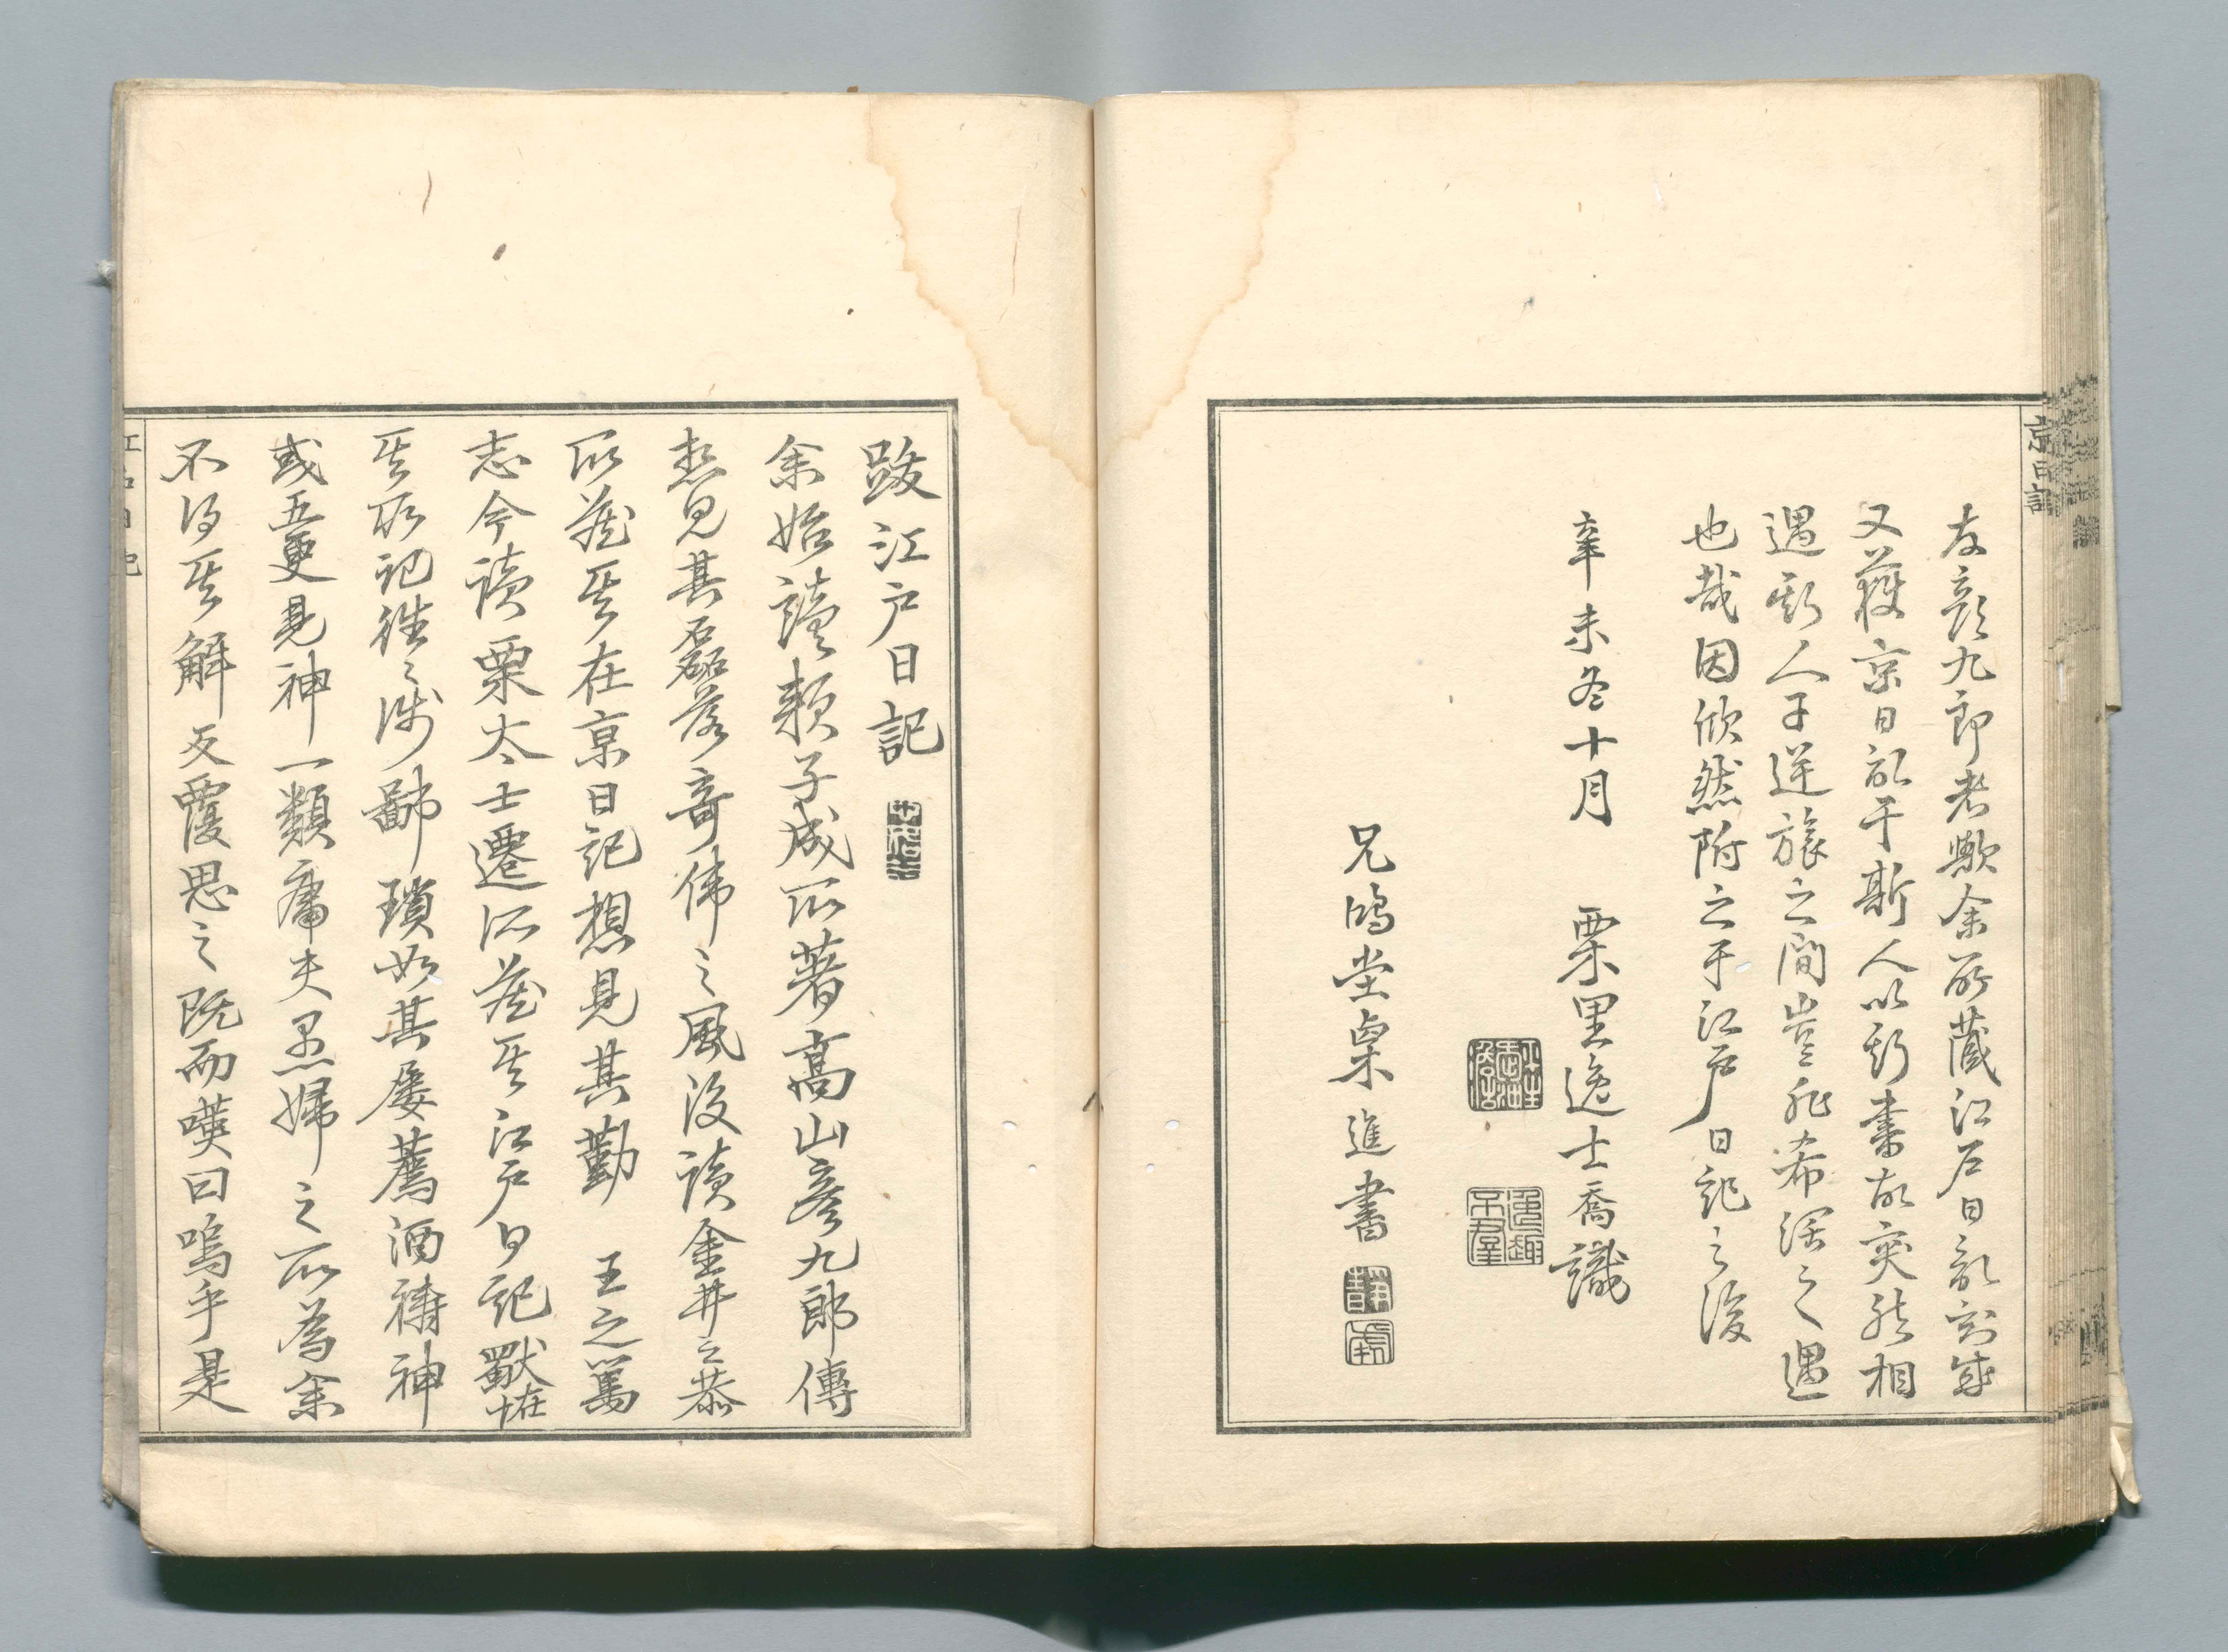 京日記
友彦九郎者歟余所蔵江戸日記刻成
又獲京日記于斯人以刻書故突然相
遇彫人于逆旅之間豈非希謡之遇
也哉因欣然附之于江戸日記之後
辛未冬十月 栗里逸士喬識
兄鳴堂桌進書
跋江戸日記
余始讀頼子成所著高山彦九郎傳
想見其磊落奇偉之風後讀金井之恭
所蔵其在京日記想見其勤 王之篤
志今讀栗太士選所蔵其江戸日記獣在十
其所記往〻渉鄙瑣如其屡薦酒祷神
或五更見神一類庸夫愚婦之所為余
不得其解反覆思之既而嘆曰嗚乎是